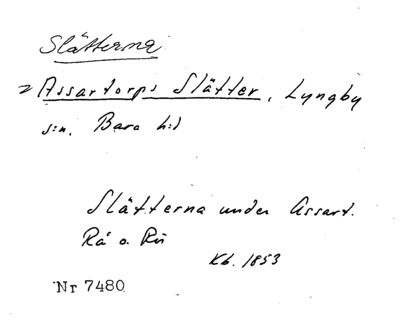 Slätterna
= Assartorps Slätter, Lyngby
s:n, Bara h:d
Slätterna under Assart.
Rå o. Rör
Kb. 1853
Nr 7480